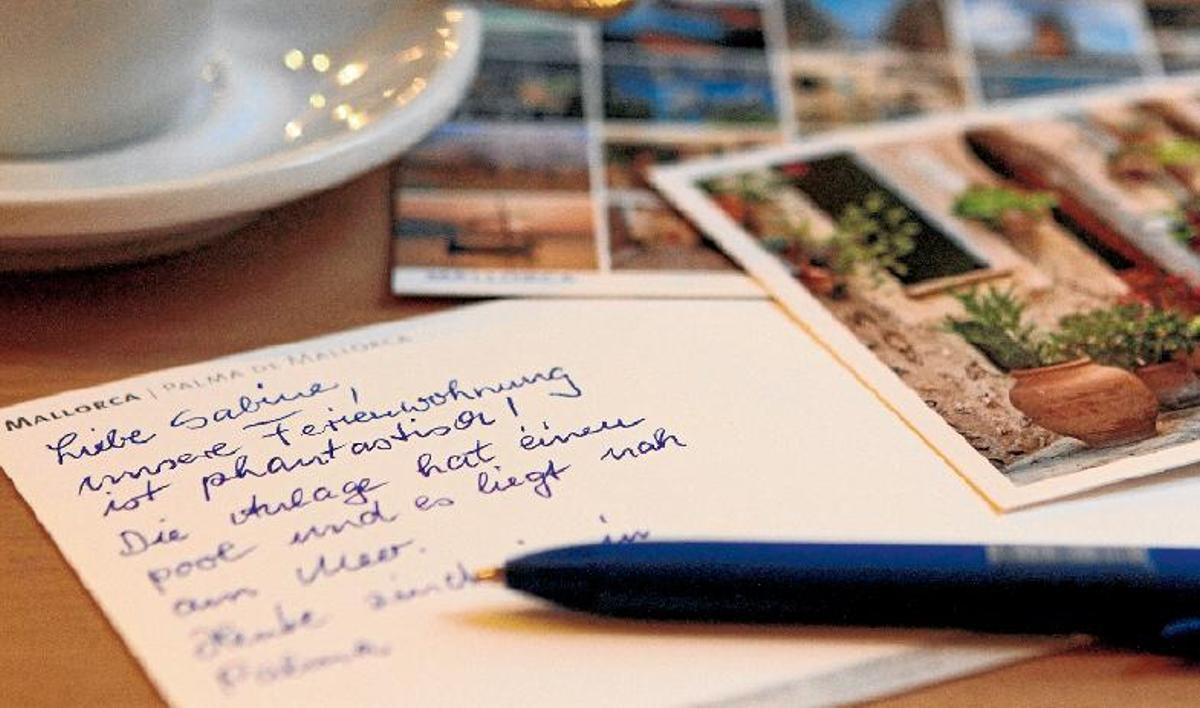 MALLORCA
MALLORCA | PALMA DE MALLORCA
Liebe Sabine,
unsere Ferienwohnung
ist phantastisch!
Die Anlage hat einen
pool und es liegt nah
am Meer.
Heute sind in
Palma